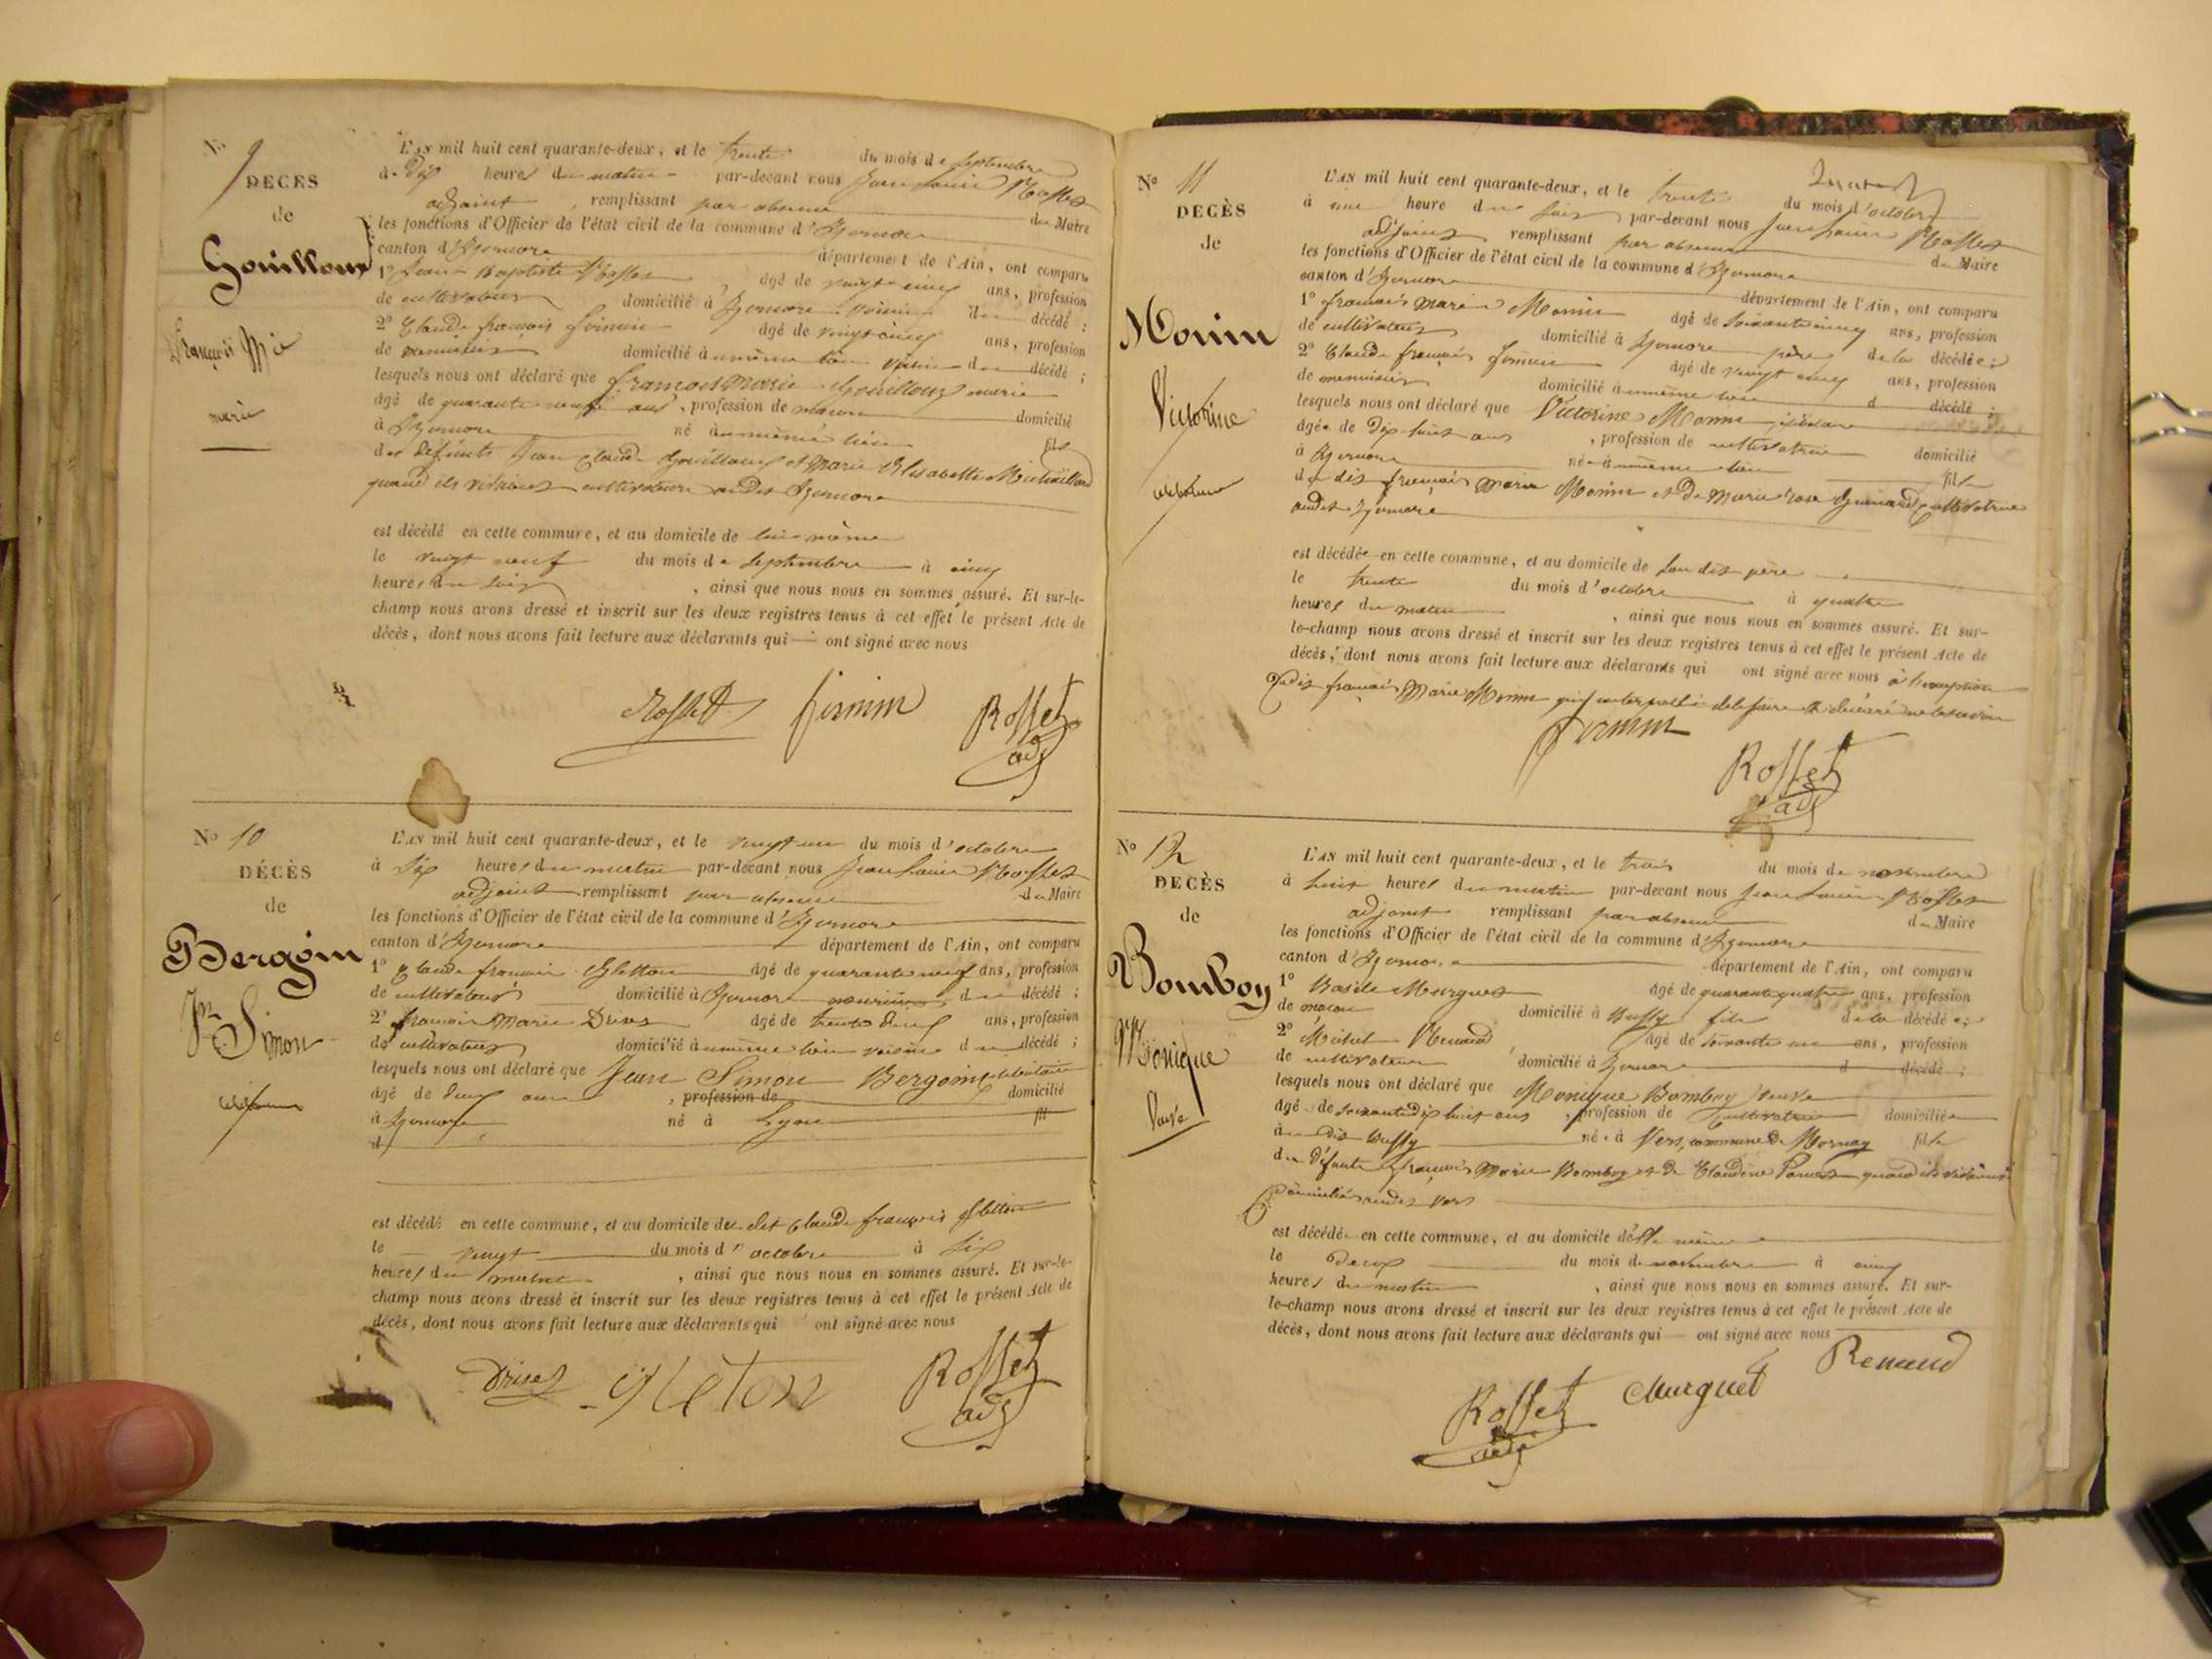 No 9
DECES
de
Gouilloux
François Mie
marié
L'AN mil huit cent quarante-deux, et le trente du mois de septembre
à dix heures du matin par-devant nous Jean Louis Rosset
adjoint, remplissant par absence du Maire
les fonctions d'Officier de l'état civil de la commune d'Izernore
canton d'Izernore département de l'Ain, ont comparu
1° Jean Baptiste Rosset, âgé de vingt cinq ans, profession
de cultivateur domicilié à Izernore voisin du décédé;
2° Claude françois firmin âgé de vingt cinq ans, profession
de menuisier domicilié à même lieu voisin du décédé;
lesquels nous ont déclaré que françois Marie Gouilloux marié
âgé de quarante neuf ans, profession de maçon domicilié
à Izernore né à même lieu fils
des défunts Jean Claude Gouilloux et Marie Elisabeth
quand ils vivaient cultivateurs audit Izernore
est décédé en cette commune, et au domicile de lui même
le vingt neuf du mois de septembre à cinq
heures du soir, ainsi que nous nous en sommes assuré. Et sur-le-
champ nous avons dressé et inscrit sur les deux registres tenus à cet effet le présent Acte de
décès, dont nous avons fait lecture aux déclarants qui ont signé avec nous
Rosset firmin Rosset
adj
No 10
DÉCÈS
de
Bergoin
Jn Simon
célibataire
L'AN mil huit cent quarante-deux, et le vingt un du mois d'octobre
à six heures du matin par-devant nous Jean Louis Rosset
adjoint remplissant par absence du Maire
les fonctions d'Officier de l'état civil de la commune d'Izernore
canton d'Izernore département de l'Ain, ont comparu
1° Claude françois Gletton âgé de quarante neuf ans, profession
de cultivateur domicilié à Izernore du décédé;
2° françois Marie Drivet âgé de trente deux ans, profession
de cultivateur domicilié à même lieu voisin du décédé;
lesquels nous ont déclaré que Jean Simon Bergoin célibataire
âgé de deux ans, profession de domicilié
à Izernore né à Lyon fil
d
est décédé en cette commune, et au domicile du dit Claude françois Gletton
le vingt du mois d'octobre à six
heures du matin, ainsi que nous nous en sommes assuré. Et sur-le-
champ nous avons dressé et inscrit sur les deux registres tenus à cet effet le présent Acte de
décès, dont nous avons fait lecture aux déclarants qui ont signé avec nous
Drivet Gleton Rosset
adj
No 11
DECÈS
de
Monin
Victorine
célibataire
L'AN mil huit cent quarante-deux, et le trente du mois d'octobre
à une heure du soir par-devant nous Jean Louis Rosset
adjoint remplissant par absence du Maire
les fonctions d'Officier de l'état civil de la commune d'Izernore
canton d'Izernore département de l'Ain, ont comparu
1° françois Marie Monin âgé de soixante cinq ans, profession
de cultivateur domicilié à Izernore père de la décédée;
2° Claude françois firmin âgé de vingt cinq ans, profession
de menuisier domicilié à même lieu d décédé;
lesquels nous ont déclaré que Victorine Monin, célibataire
âgée de dix-huit ans, profession de cultivatrice domicilié
à Izernore née à même lieu fille
du dit françois Marie Monin et de Marie Rose cultivatrice
audit Izernore
est décédée en cette commune, et au domicile de son dit père
le trente du mois d'octobre à quatre
heures du matin, ainsi que nous nous en sommes assuré. Et sur-
le-champ nous avons dressé et inscrit sur les deux registres tenus à cet effet le présent Acte de
décès, dont nous avons fait lecture aux déclarants qui ont signé avec nous à l'exception
dudit françois Marie Monin qui interpellé de le faire a déclaré ne le savoir
firmin
Rosset
adj
No 12
DECÈS
de
Bomboy
Monique
Veuve
L'AN mil huit cent quarante-deux, et le trois du mois de novembre
à huit heures du matin par-devant nous Jean Louis Rosset
adjoint remplissant par absence du Maire
les fonctions d'Officier de l'état civil de la commune d'Izernore
canton d'Izernore département de l'Ain, ont comparu
1° Basile Murguet âgé de quarante quatre ans, profession
de maçon domicilié à Bussy fils de la décédée;
2° Michel Renaud âgé de soixante un ans, profession
de cultivateur domicilié à Izernore d décédé;
lesquels nous ont déclaré que Monique Bomboy veuve
âgé de soixante dix huit ans, profession de cultivatrice domiciliée
audit Bussy née à Vers, commune de Mornay fille
du défunt françois Marie Bomboy et de Claudine quand ils vivaient
domiciliés audit Vers
est décédée en cette commune, et au domicile d'elle même
le deux du mois de novembre à cinq
heures du matin, ainsi que nous nous en sommes assuré. Et sur-
le-champ nous avons dressé et inscrit sur les deux registres tenus à cet effet le présent Acte de
décès, dont nous avons fait lecture aux déclarants qui ont signé avec nous
Rosset Murguet Renaud
adj